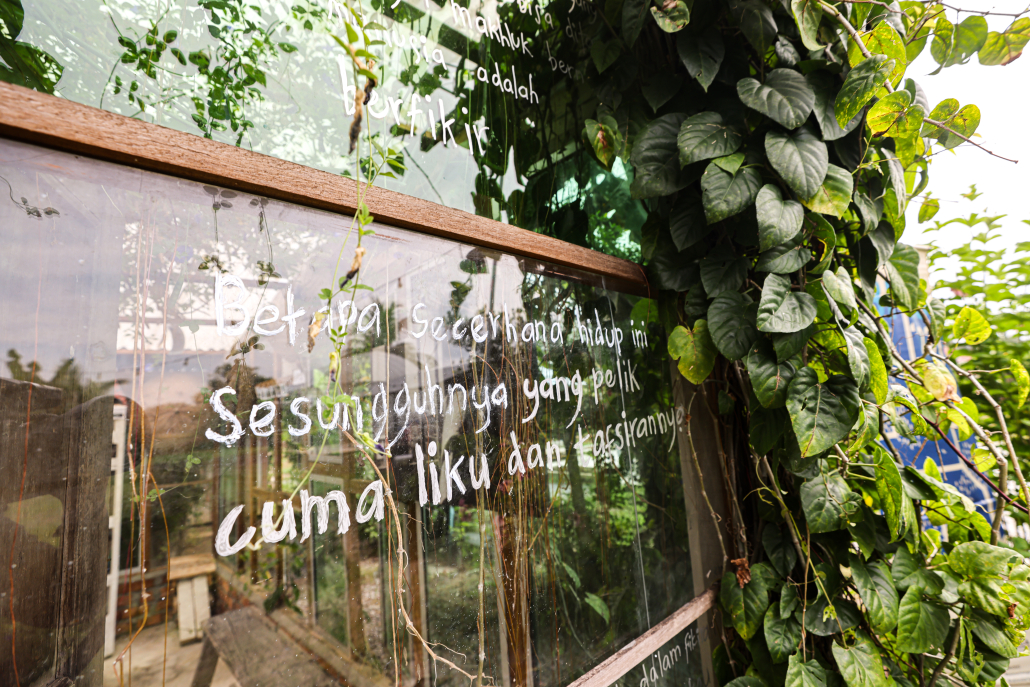 makhluk ber
adalah
berfikir
Betapa Sederhana hidup ini
Sesungguhnya yang pelik
cuma liku dan tafsirannya
dalam